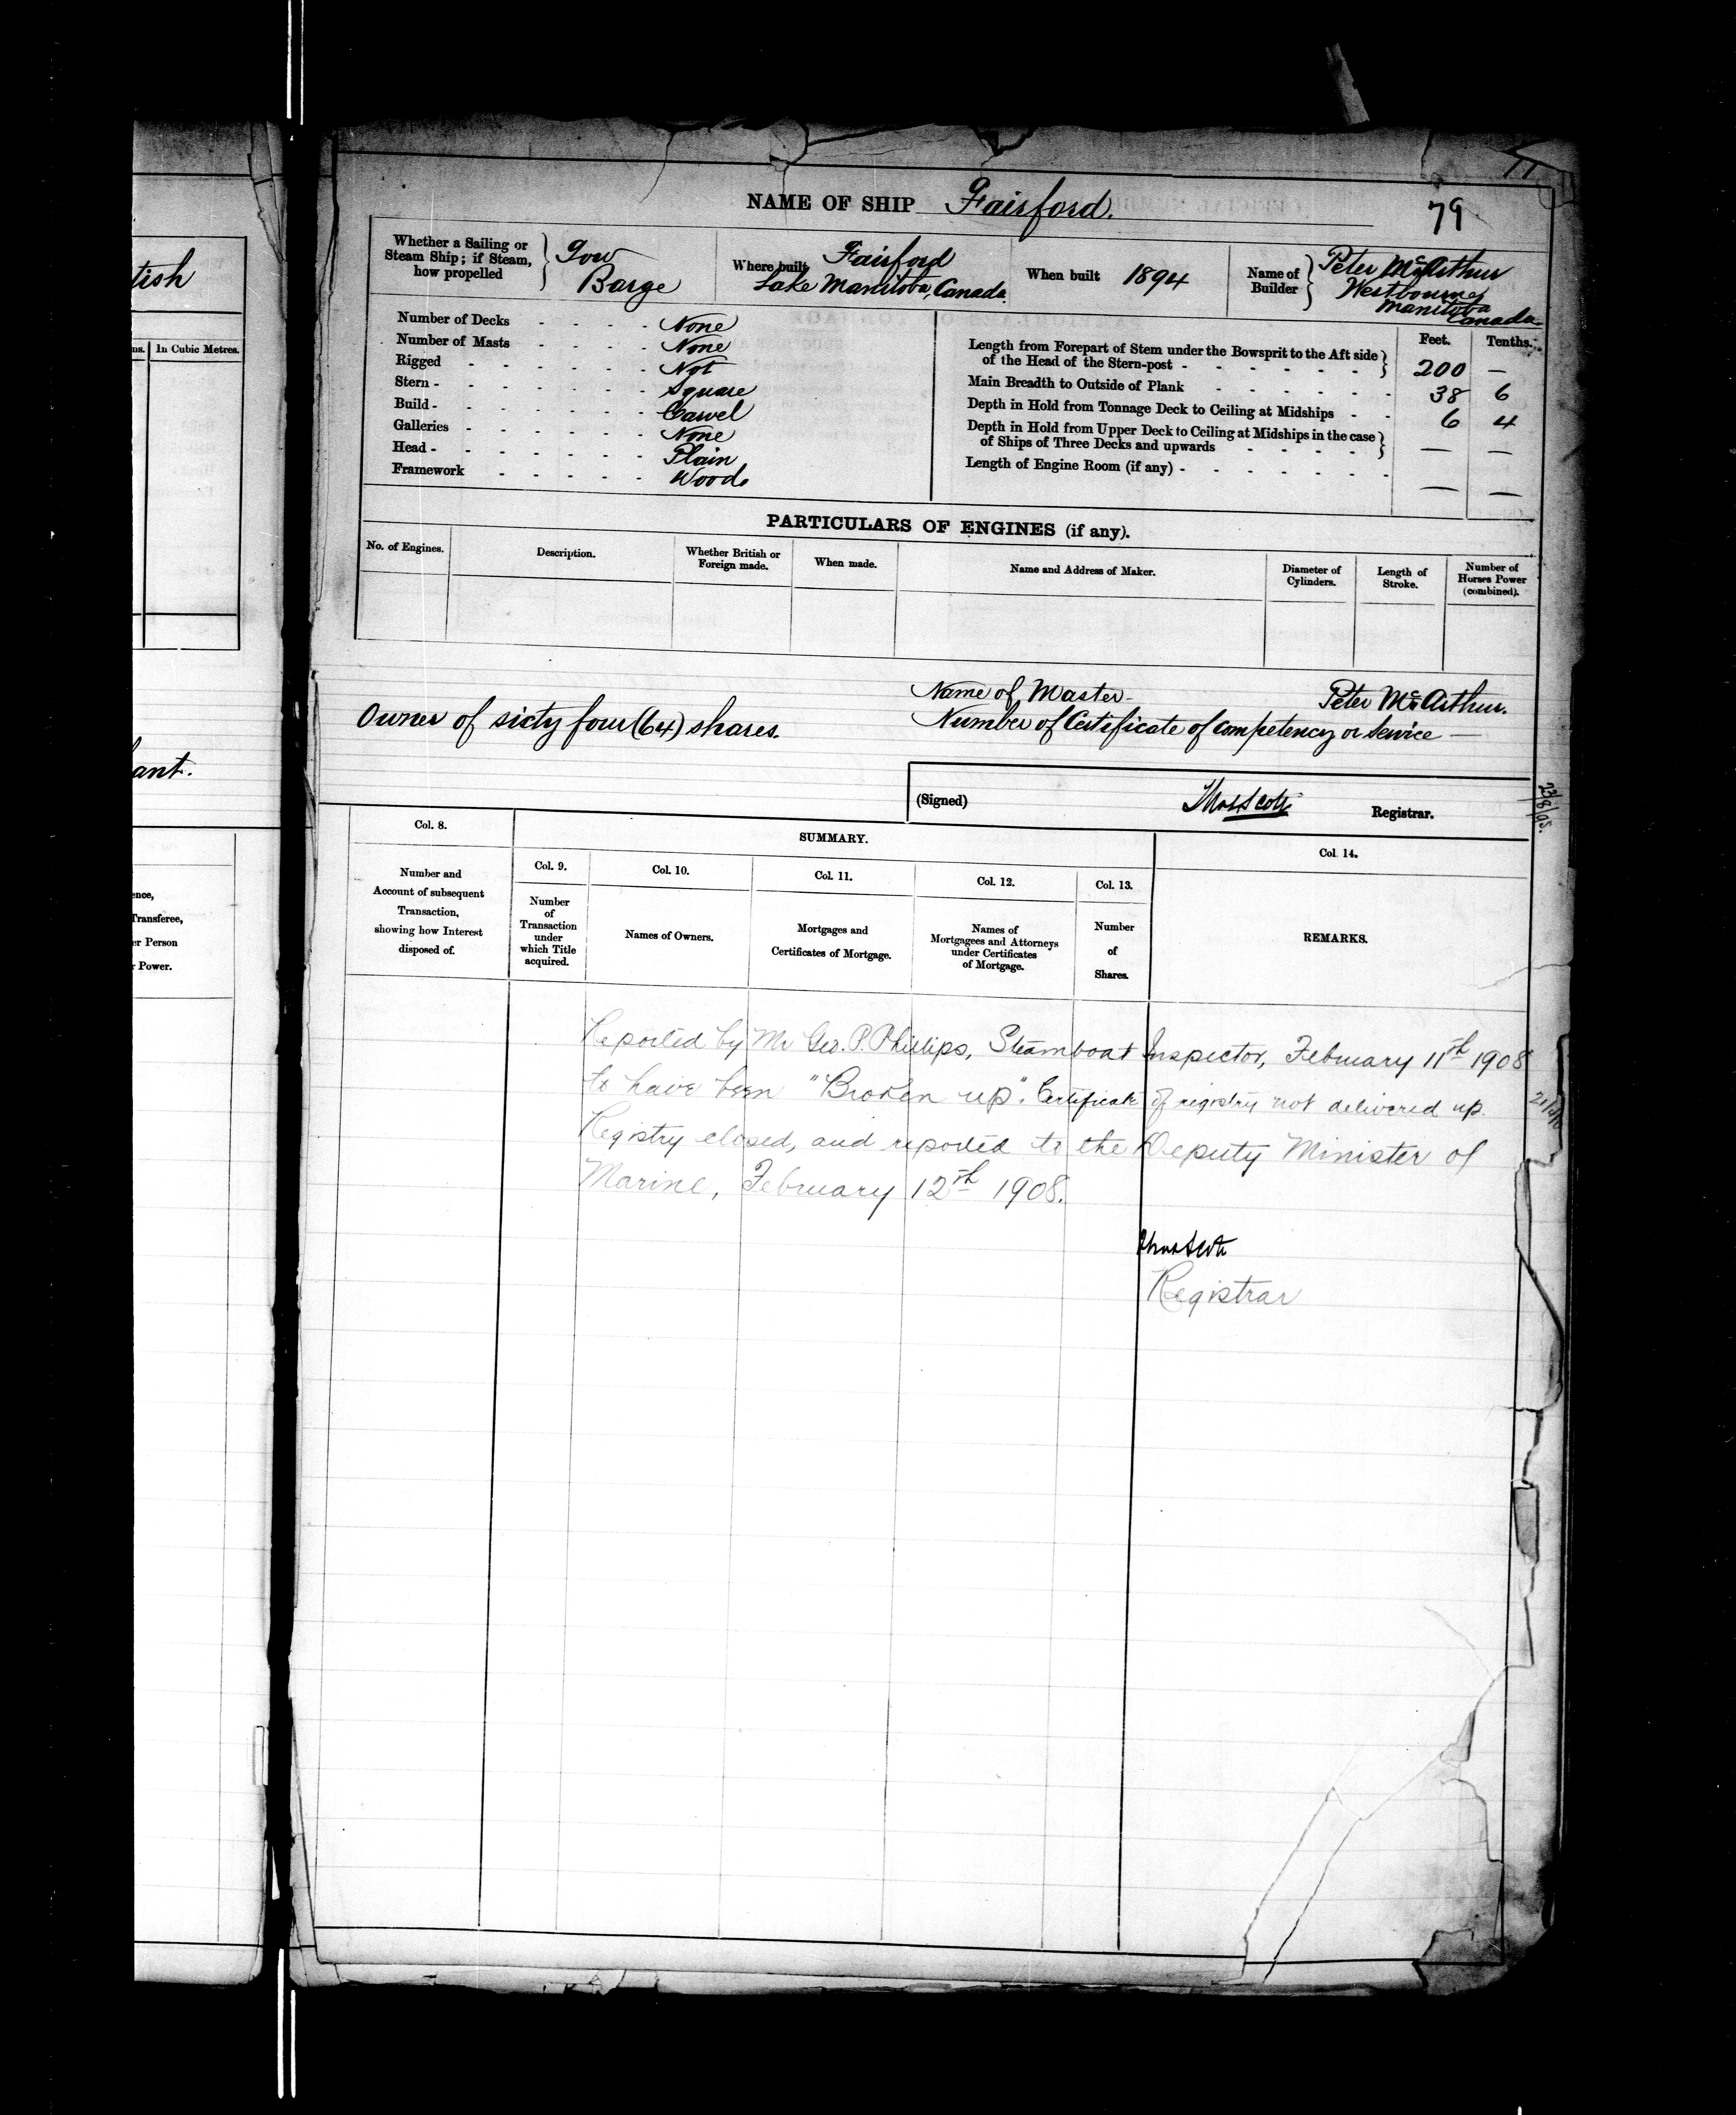 tish
ns. In Cubic Metres.
ant.
ence,
Transferee,
er Person
r Power.
79
NAME OF SHIP Fairford.
Whether a Sailing or
Steam Ship; if Steam,
how propelled
Tow
Barge
Where built Fairford
Lake Manitoba, Canada.
When built 1894
Name of
Builder
Peter McArthur
Westbourne
Manitoba
Canada.
Number of Decks - - - - None
Number of Masts - - - - None
Rigged - - - - - - Not
Stern - - - - - - - Square
Build - - - - - - - Carvel
Galleries - - - - - - None
Head - - - - - - - Plain
Framework - - - - - Wood.
Feet. Tenths.
Length from Forepart of Stem under the Bowsprit to the Aft side
of the Head of the Stern-post - - - - - - 200 —
Main Breadth to Outside of Plank - - - - - - 38 6
Depth in Hold from Tonnage Deck to Ceiling at Midships - - 6 4
Depth in Hold from Upper Deck to Ceiling at Midships in the case
of Ships of Three Decks and upwards - - - - — —
Length of Engine Room (if any) - - - - - - - — —
PARTICULARS OF ENGINES (if any).
No. of Engines.
Description.
Whether British or
Foreign made.
When made.
Name and Address of Maker.
Diameter of
Cylinders.
Length of
Stroke.
Number of
Horses Power
(combined).
Name of Master - Peter McArthur.
Owner of sixty four (64) shares.
Number of Certificate of competency or Service —
(Signed) Thos Scott Registrar.
23/8/95.
Col. 8.
Number and
Account of subsequent
Transaction,
showing how Interest
disposed of.
SUMMARY.
Col. 9.
Number
of
Transaction
under
which Title
acquired.
Col. 10.
Names of Owners.
Col. 11.
Mortgages and
Certificates of Mortgage.
Col. 12.
Names of
Mortgagees and Attorneys
under Certificates
of Mortgage.
Col. 13.
Number
of
Shares.
Col. 14.
REMARKS.
Reported by Mr Geo. P. Phillips, Steamboat Inspector, February 11th 1908
to have been "Broken up". Certificate of registry not delivered up.
Registry closed, and reported to the Deputy Minister of
Marine, February 12th 1908.
Thos Scott
Registrar